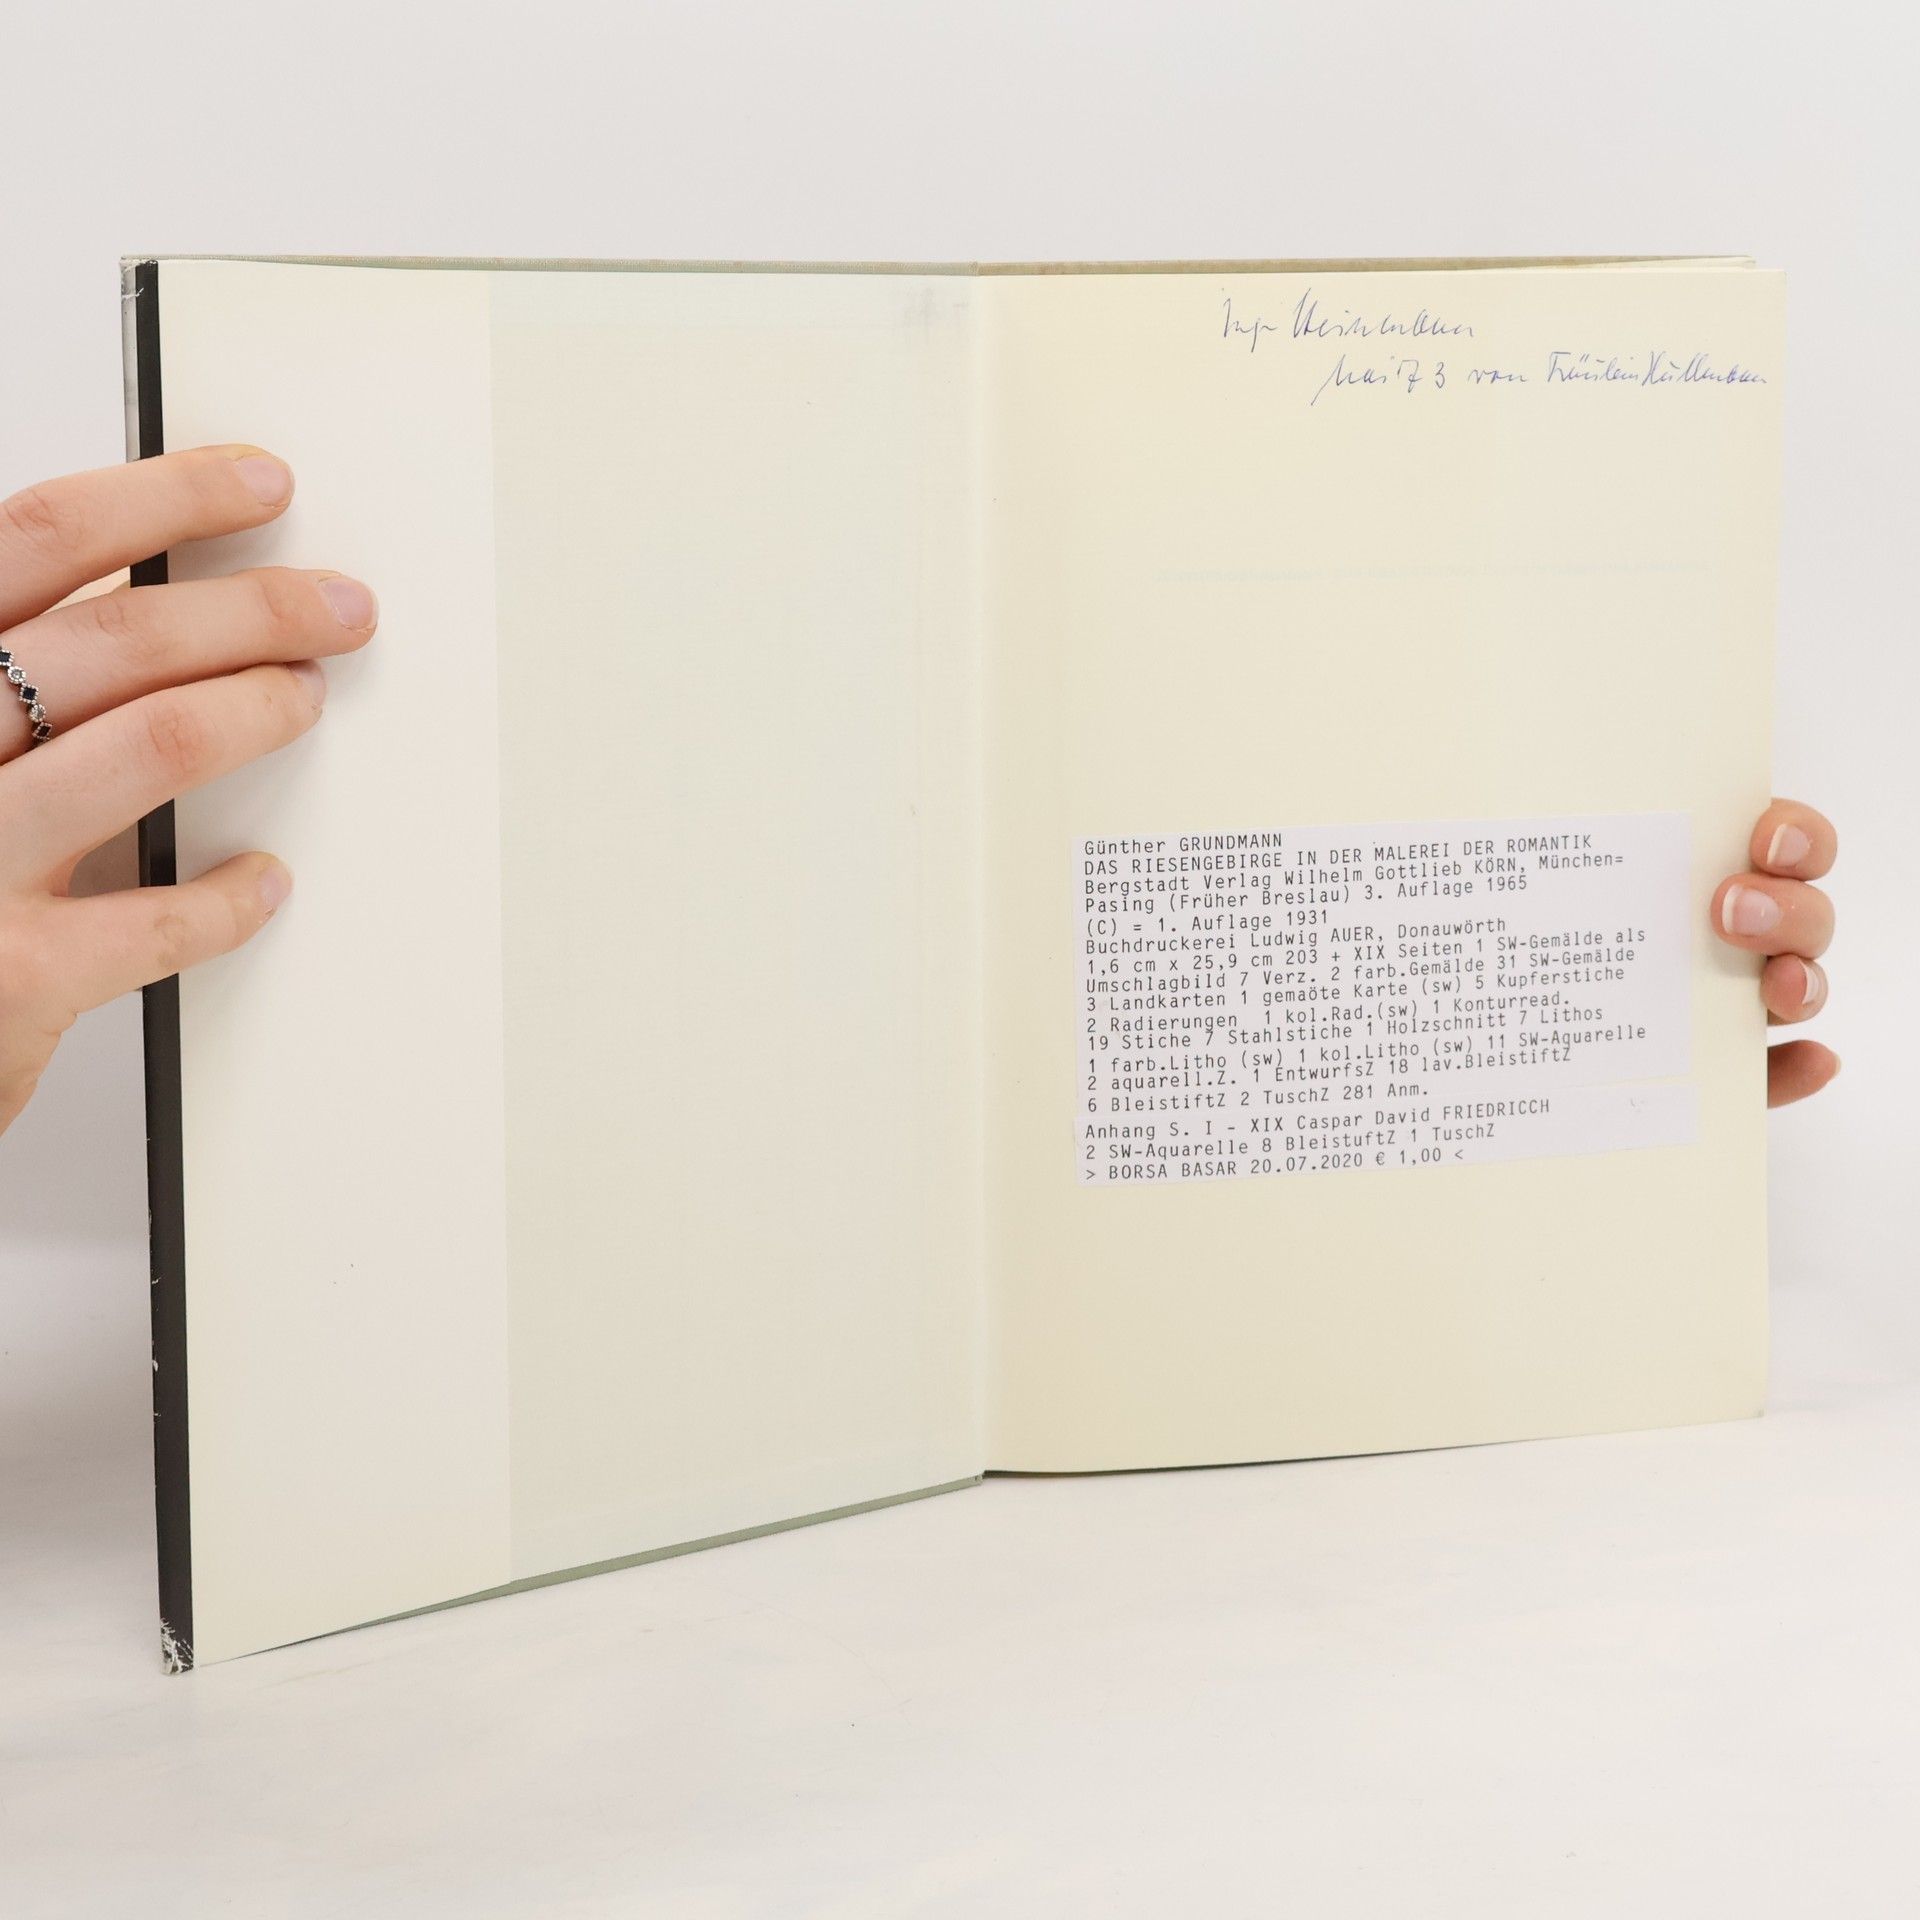 von Fräulein
Günther GRUNDMANN
DAS RIESENGEBIRGE IN DER MALEREI DER ROMANTIK
Bergstadt Verlag Wilhelm Gottlieb KÖRN, München=
Pasing (Früher Breslau) 3. Auflage 1965
(C) = 1. Auflage 1931
Buchdruckerei Ludwig AUER, Donauwörth
1,6 cm x 25,9 cm 203 + XIX Seiten 1 SW-Gemälde als
Umschlagbild 7 Verz. 2 farb.Gemälde 31 SW-Gemälde
3 Landkarten 1 gemaöte Karte (sw) 5 Kupferstiche
2 Radierungen 1 kol.Rad.(sw) 1 Konturread.
19 Stiche 7 Stahlstiche 1 Holzschnitt 7 Lithos
1 farb.Litho (sw) 1 kol.Litho (sw) 11 SW-Aquarelle
2 aquarell.Z. 1 EntwurfsZ 18 lav.BleistiftZ
6 BleistiftZ 2 TuschZ 281 Anm.
Anhang S. I - XIX Caspar David FRIEDRICCH
2 SW-Aquarelle 8 BleistuftZ 1 TuschZ
> BORSA BASAR 20.07.2020 € 1,00 <